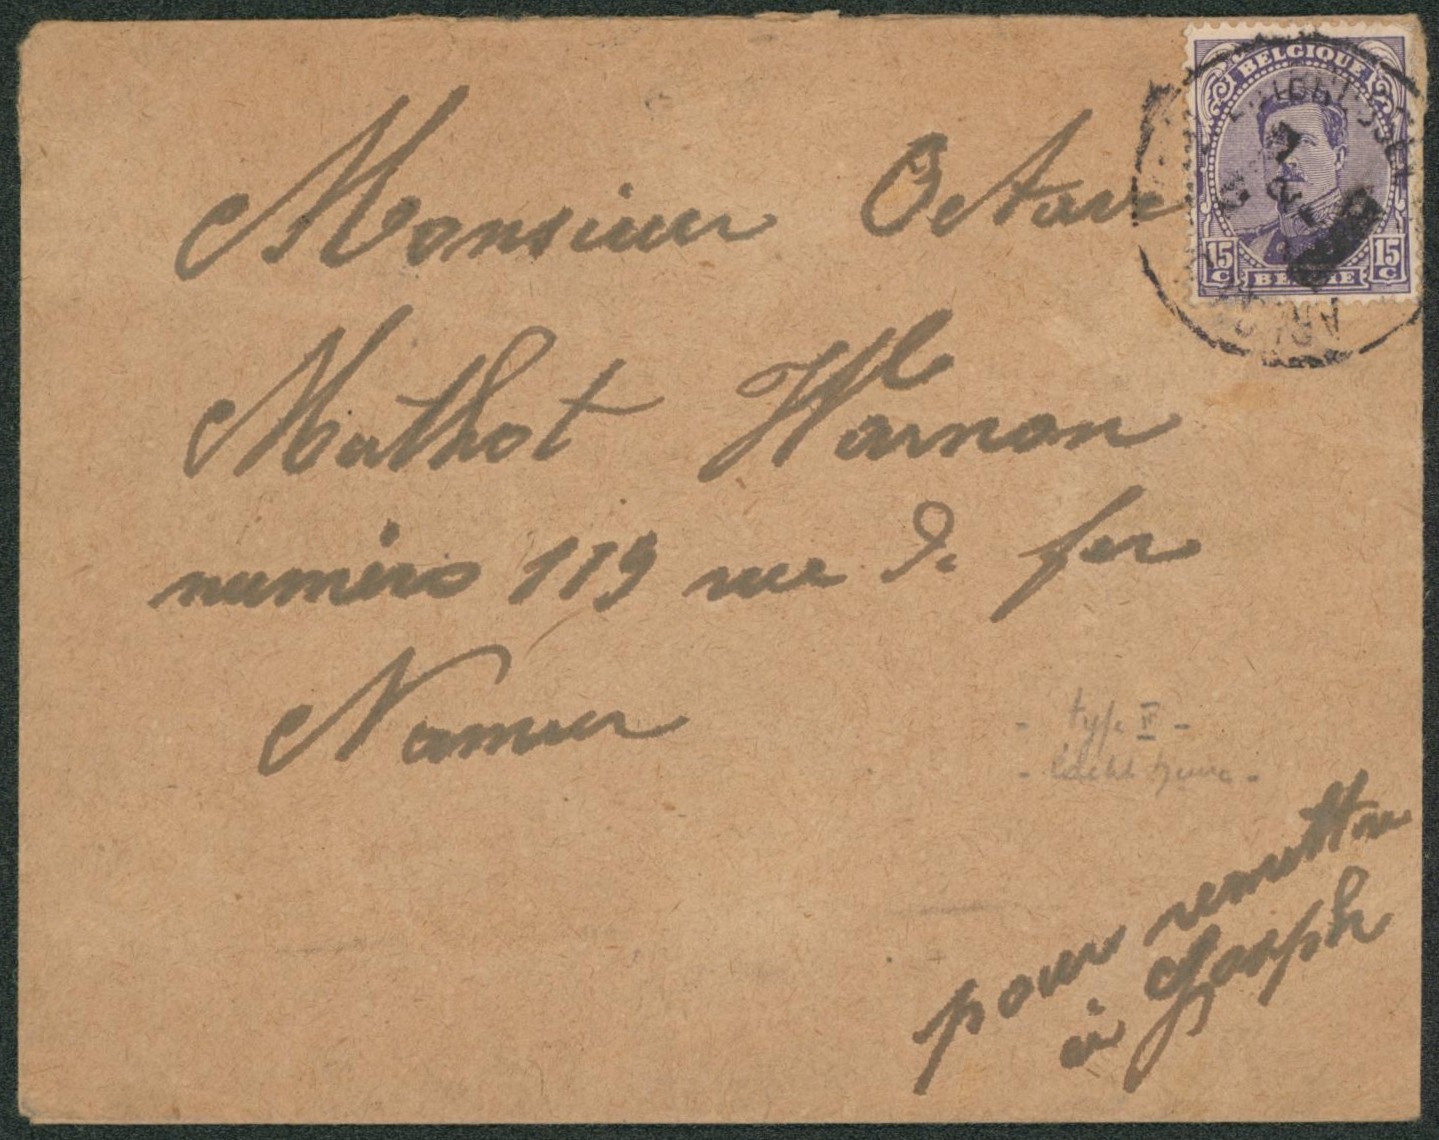 BELGIQUE
15 C 15 C
BELGIË
Monsieur Octave
Mathot Warnon
numéro 119 rue de fer
Namur
- type II -
pour remettre
à Joseph